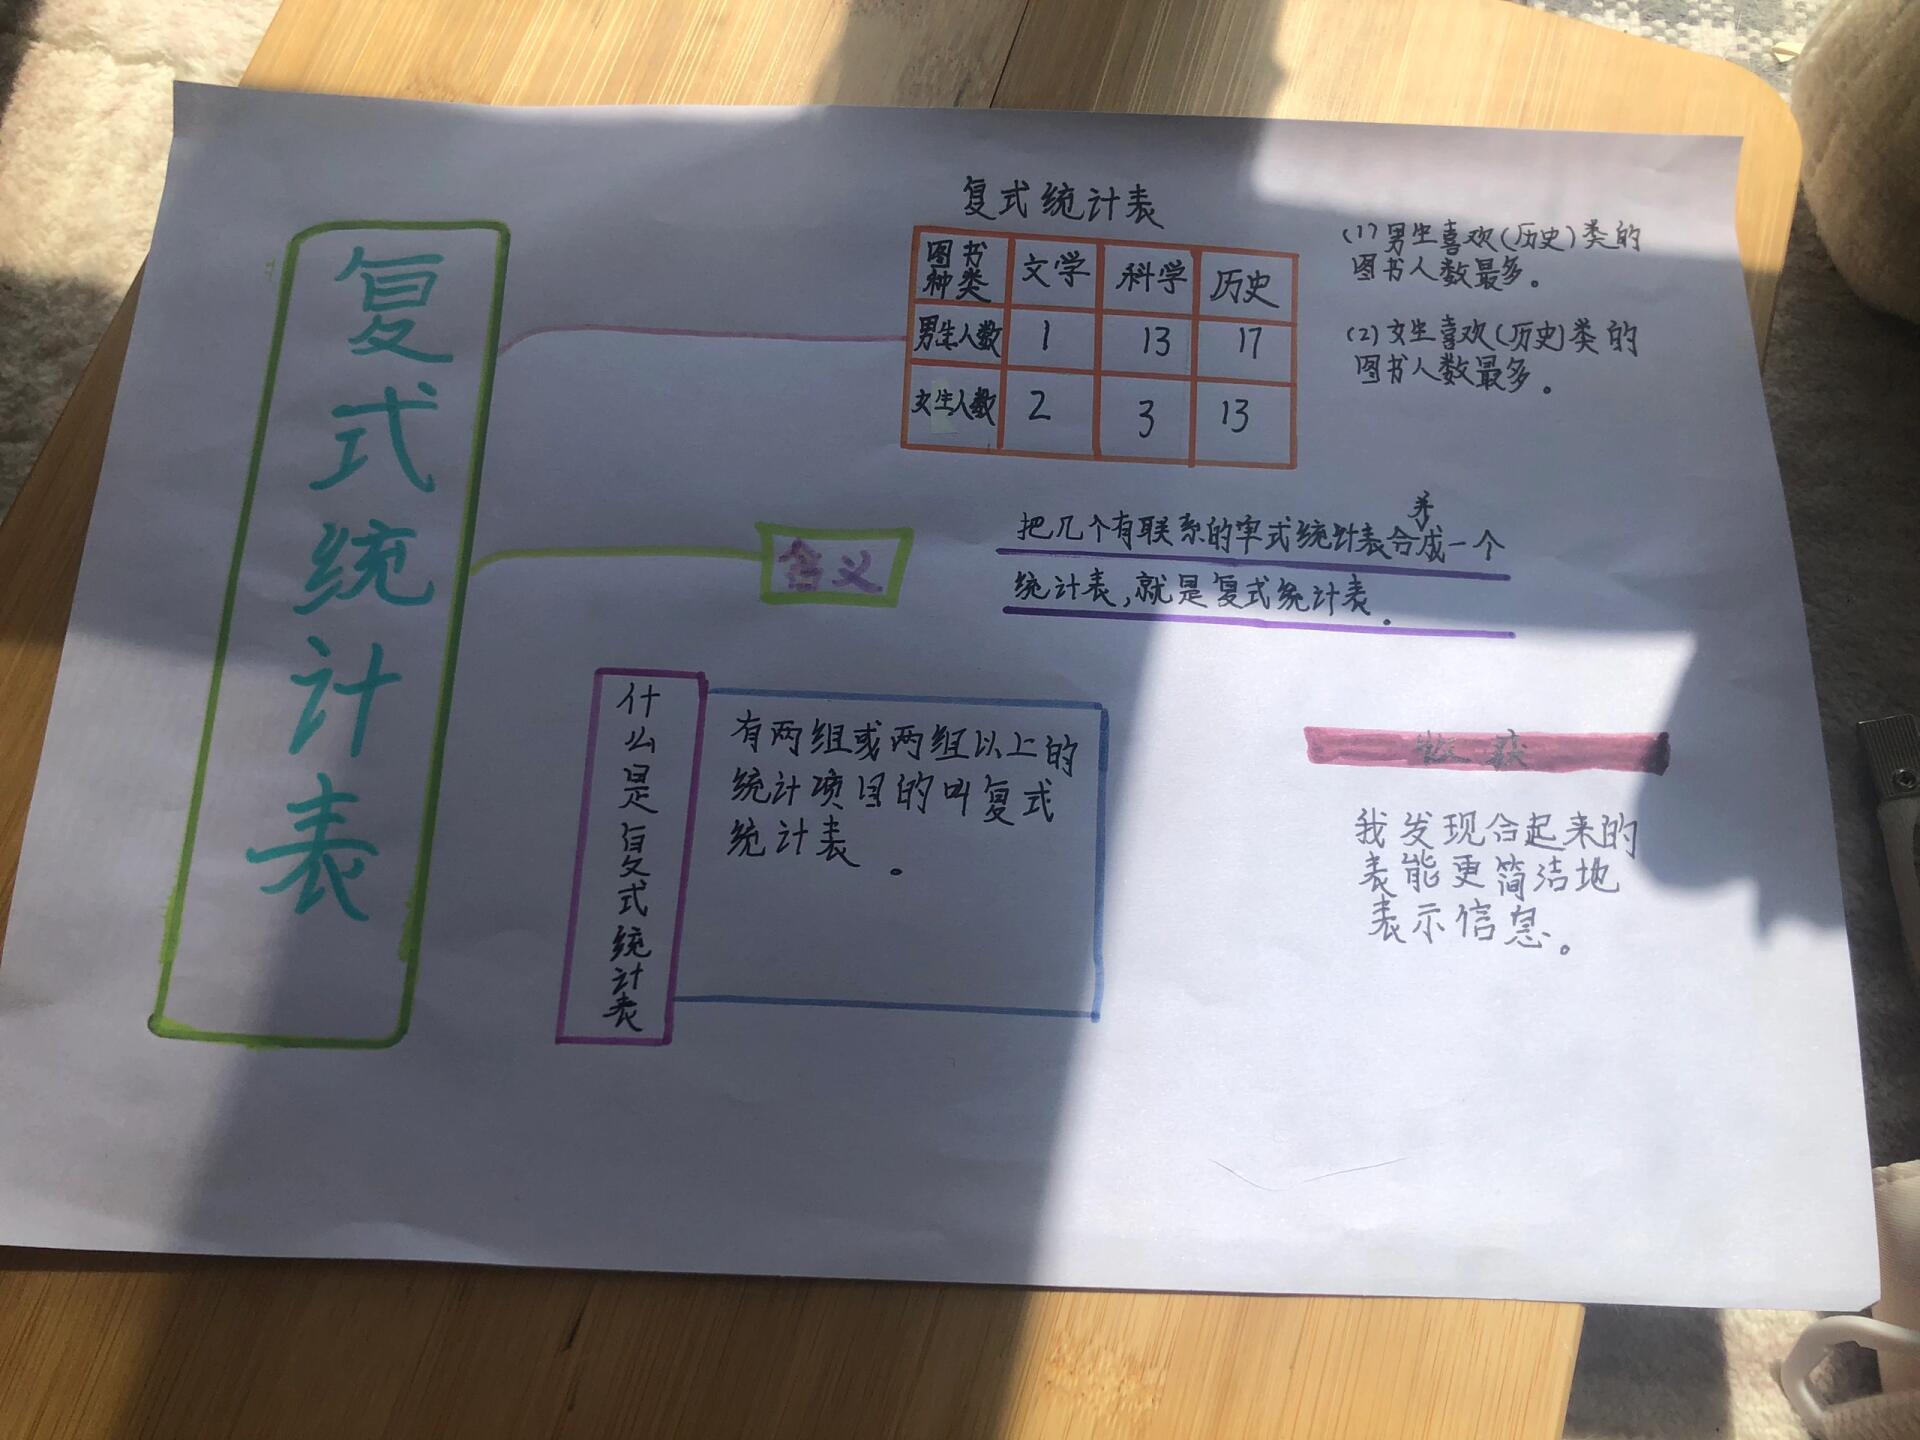 复式统计表
复式统计表
图书种类 文学 科学 历史
男生人数 1 13 17
女生人数 2 3 13
(1)男生喜欢(历史)类的
图书人数最多。
(2)女生喜欢(历史)类的
图书人数最多。
含义
把几个有联系的单式统计表合并成一个
统计表,就是复式统计表.
什么是复式统计表
有两组或两组以上的
统计项目的叫复式
统计表。
收获
我发现合起来的
表能更简洁地
表示信息。